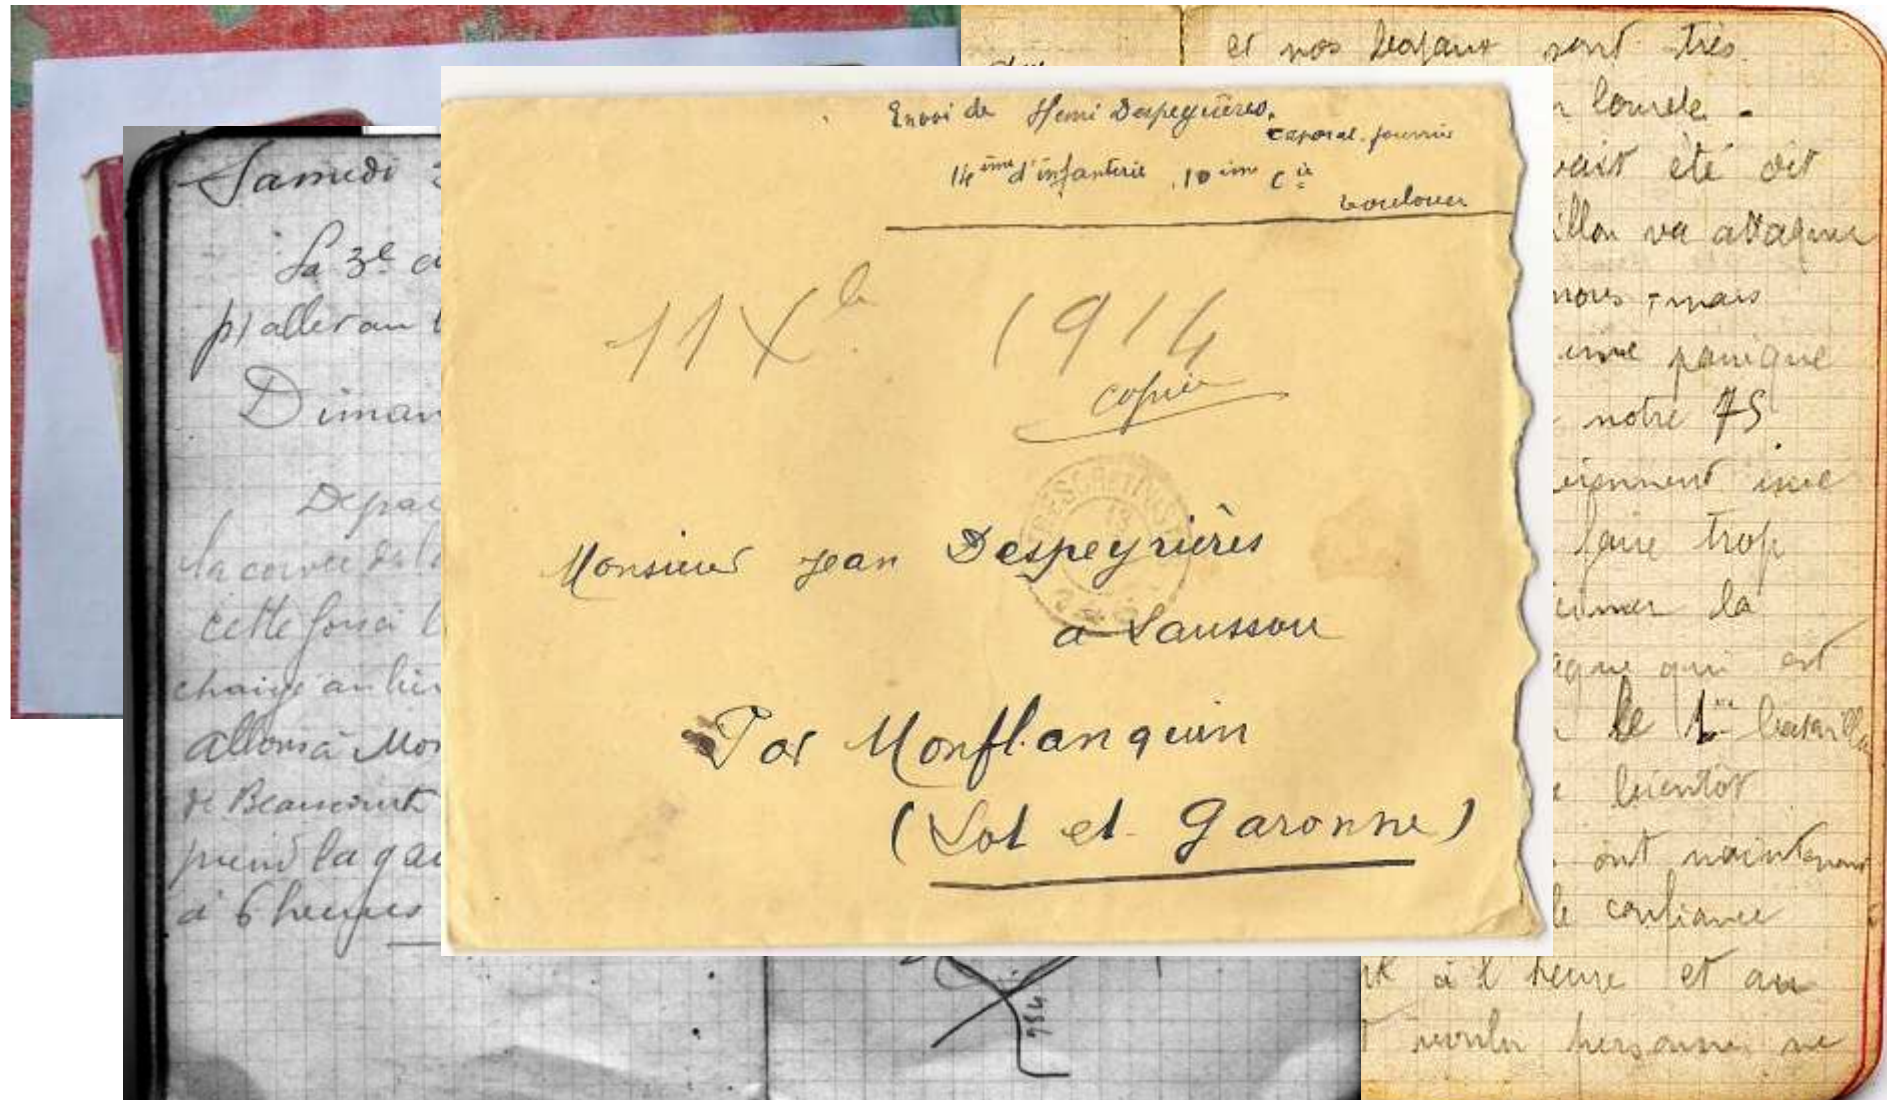 Samedi
La 3e
p) aller au
Diman
Depar
la corvée de
cette fois à
chargé au
allons à Mon
de Beaucourt
prend la ga
à 6 heures
Envoi de Henri Despeyrières,
caporal-fourrier
14ème d'infanterie, 10ème Cie
Toulouse
11 Xbre 1914
copiée
Monsieur Jean Despeyrières
a Laussou
Par Monflanquin
(Lot et Garonne)
et nos boyaux sont très
lourde -
vait été dit
illon va attaquer
nous, mais
une panique
notre 75
viennent une
faire trop
la
qui est
le 1er bataillon
bientôt
ont maintenant
confiance
à l'heure et au
personne ne